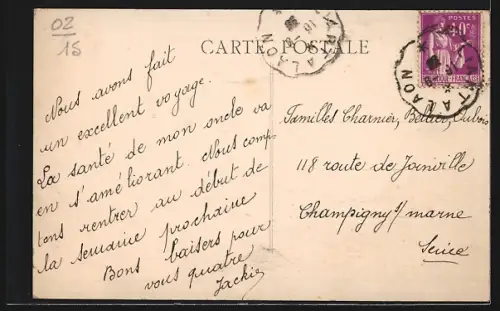 02
15
CARTE POSTALE
POSTES
Nous avons fait
un excellent voyage.
La santé de mon oncle va
en s'améliorant. Nous comp-
tons rentrer au début de
la semaine prochaine
Bons baisers pour
vous quatre
Jackie
Familles Charnier, Dubois
118 route de Joinville
Champigny s/ marne
Seine